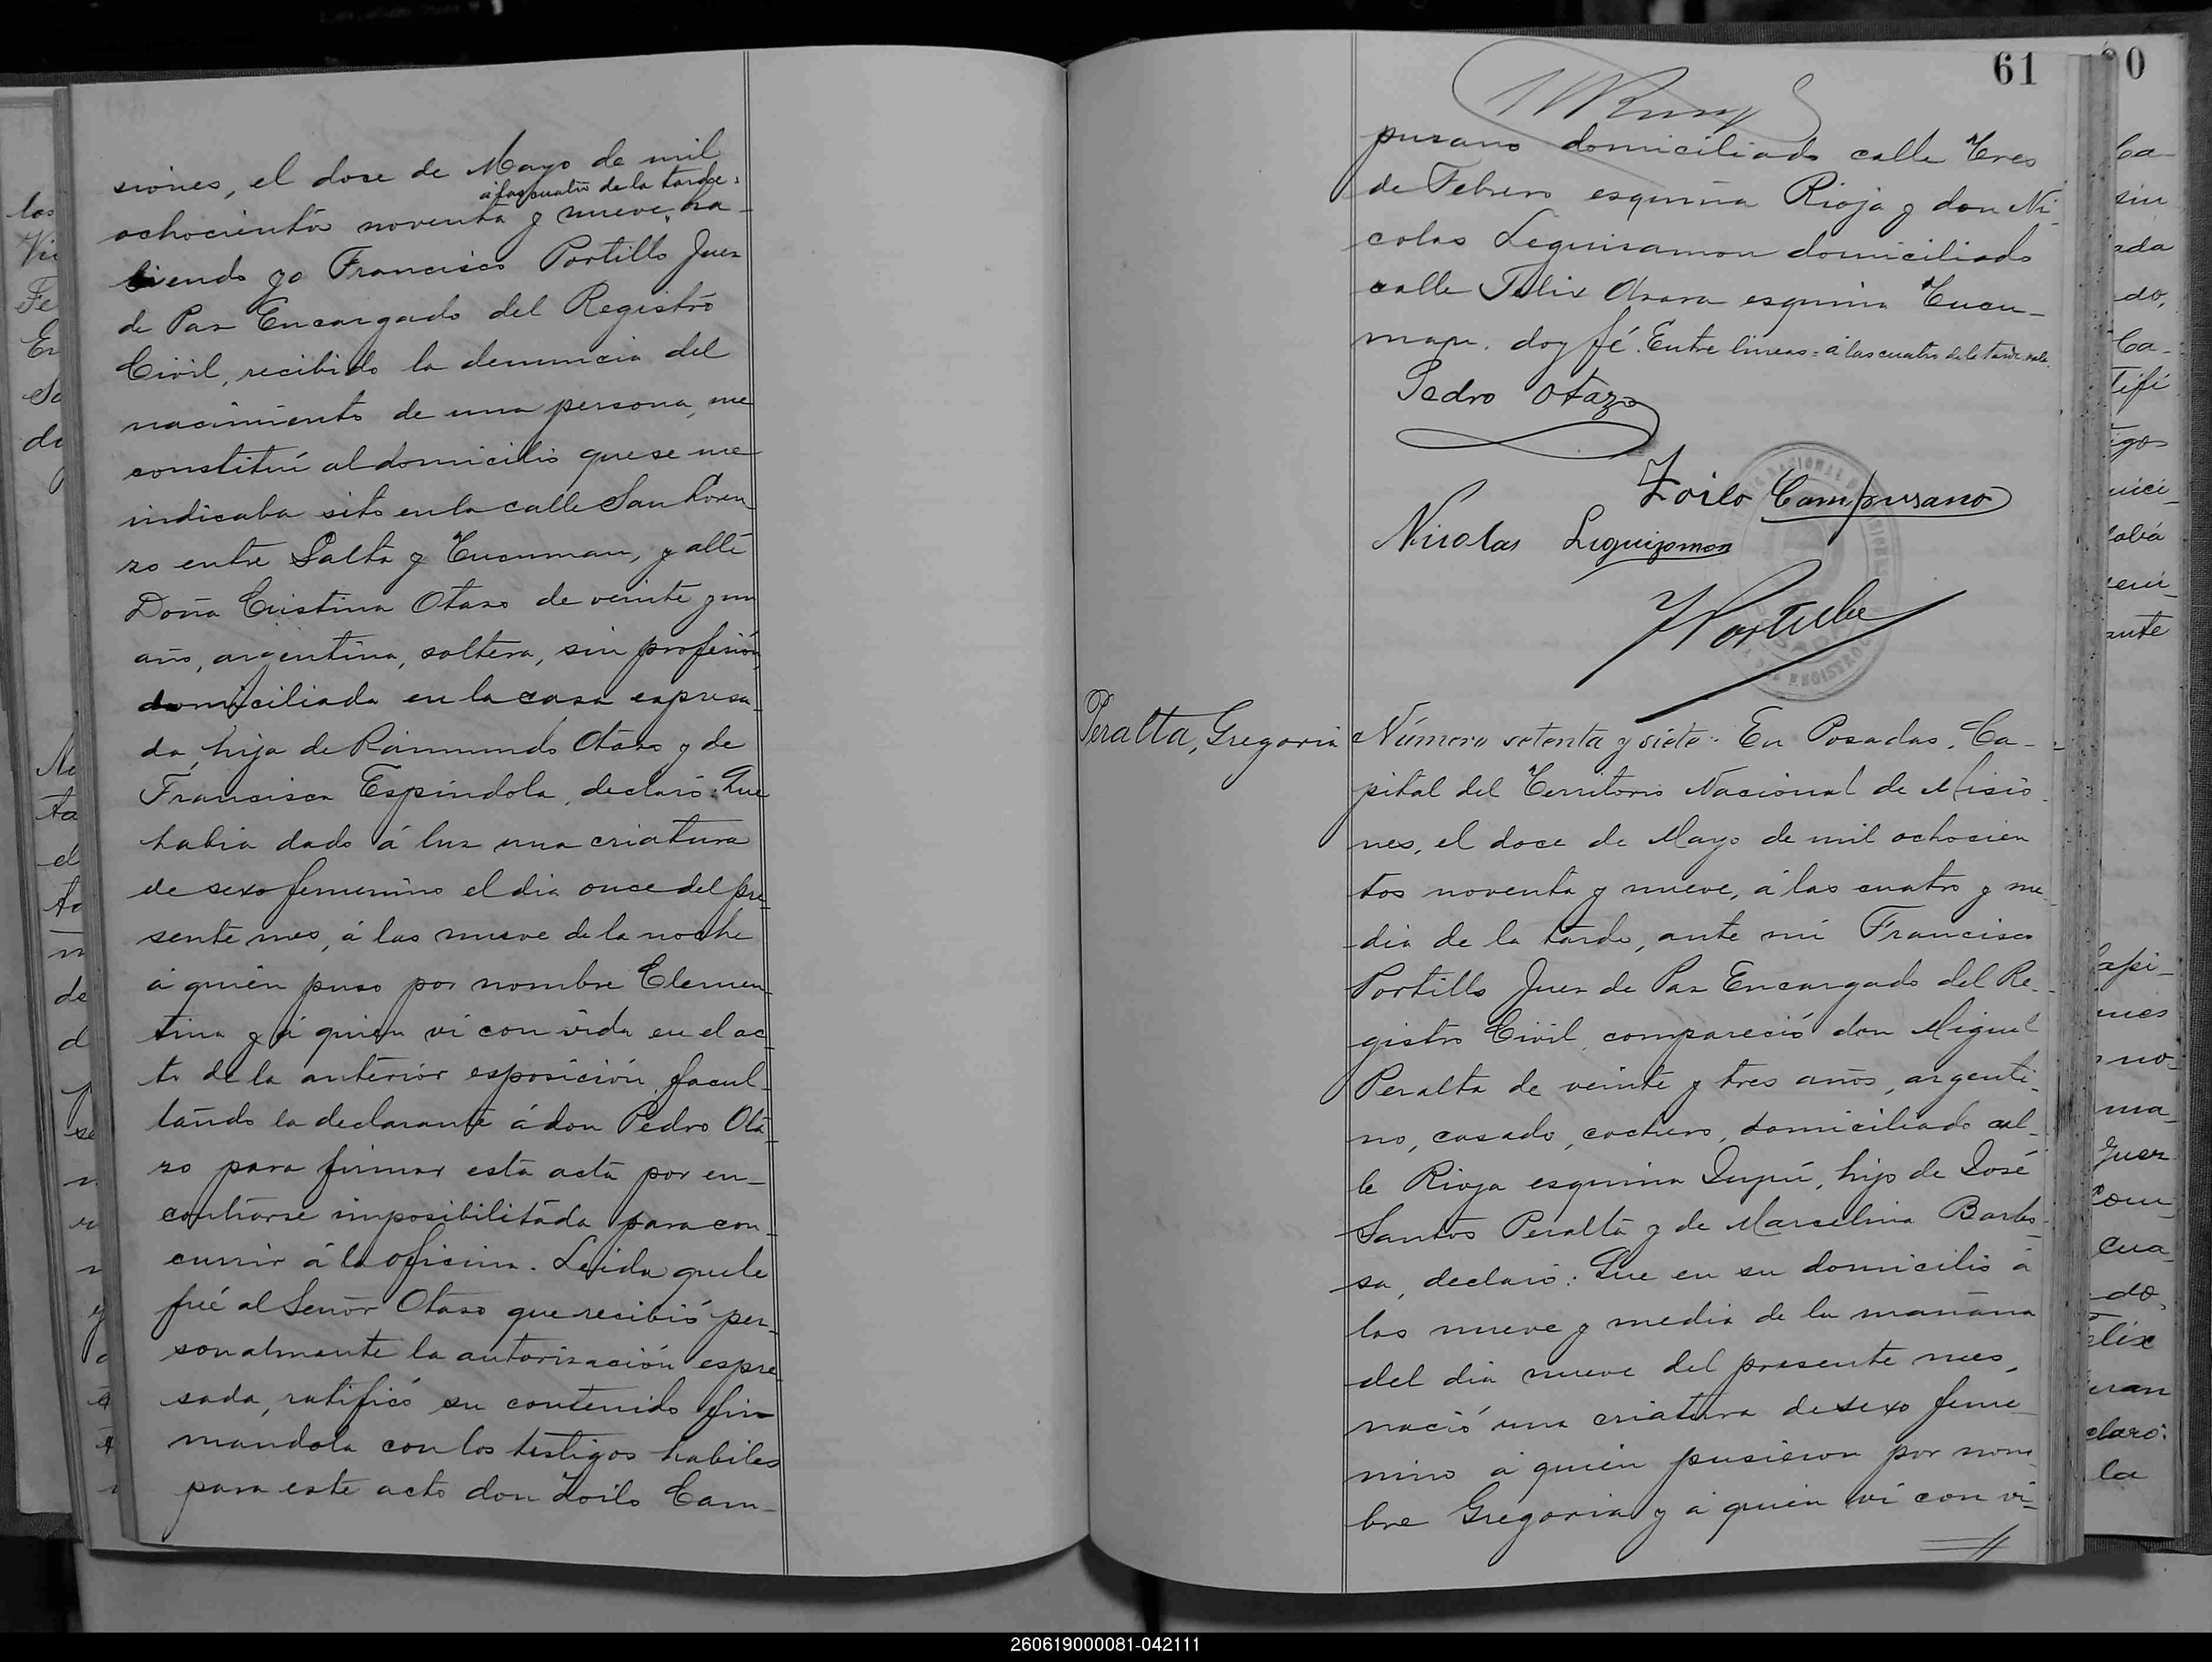 siones, el dose de Mayo de mil
á las cuatro de la tarde,
ochocientos noventa y nueve, ha-
biendo yo Francisco Portillo Juez
de Paz Encargado del Registro
Civil, recibido la denuncia del
nacimiento de una persona, me
constituí al domicilio que se me
indicaba sito en la calle San Loren
zo entre Salta y Tucuman, y allí
Doña Cristina Otazo de veinte y un
año, argentina, soltera, sin profesión,
domiciliada en la casa espresa-
da, hija de Raimundo Otazo y de
Francisca Espíndola, declaró: Que
habia dado á luz una criatura
de sexo femenino el dia once del pre-
sente mes, á las nueve de la noche
á quien puso por nombre Clemen-
tina y á quien ví con vida en el ac-
to de la anterior esposición, facul-
tando la declarante á don Pedro Ota-
zo para firmar esta acta por en-
contrarse imposibilitada para con-
currir á la oficina. Leida que le
fué al Señor Otazo que recibió per-
sonalmente la autorización espre-
sada, ratificó su contenido fir-
mandola con los testigos habiles
para este acto don Zoilo Cam-
61
puzano domiciliado calle Tres
de Febrero esquina Rioja y don Ni-
colas Leguisamon domiciliado
calle Felix Azara esquina Tucu-
man. doy fé. Entre lineas = á las cuatro de la tarde. vale.
Pedro Otazo
Zoilo Campusano
Nicolas Leguizamon
F Portillo
Peralta, Gregoria
Número setenta y siete: En Posadas, Ca-
pital del Territorio Nacional de Misio-
nes, el doce de Mayo de mil ochocien
tos noventa y nueve, á las cuatro y me-
dia de la tarde, ante mí Francisco
Portillo Juez de Paz Encargado del Re-
gistro Civil, compareció don Miguel
Peralta de veinte y tres años, argenti-
no, casado, cochero, domiciliado cal-
le Rioja esquina Jujuí, hijo de José
Santos Peralta y de Marcelina Barbo-
sa, declaró: Que en su domicilio á
las nueve y media de la mañana
del dia nueve del presente mes,
nació una criatura de sexo feme-
nino á quien pusieron por nom-
bre Gregoria y á quien ví con vi-
260619000081-042111